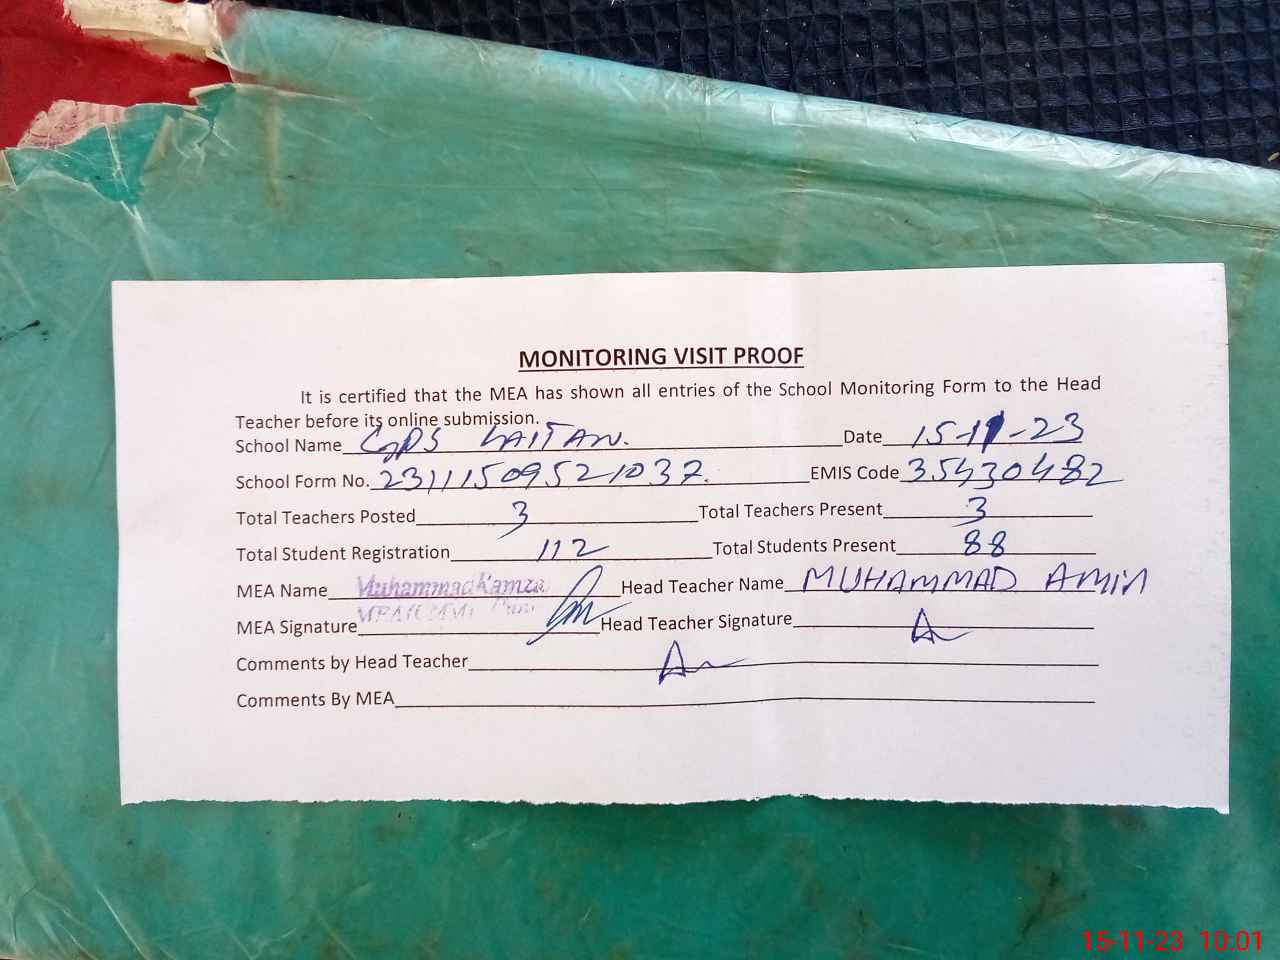 MONITORING VISIT PROOF
It is certified that the MEA has shown all entries of the School Monitoring Form to the Head
Teacher before its online submission.
School Name GPS LAITAN. Date 15-11-23
School Form No. 23111509521037. EMIS Code 35430482
Total Teachers Posted 3 Total Teachers Present 3
Total Student Registration 112 Total Students Present 88
MEA Name Muhammad Head Teacher Name MUHAMMAD AMIN
MEA Signature Head Teacher Signature
Comments by Head Teacher
Comments By MEA
15-11-23 10:01